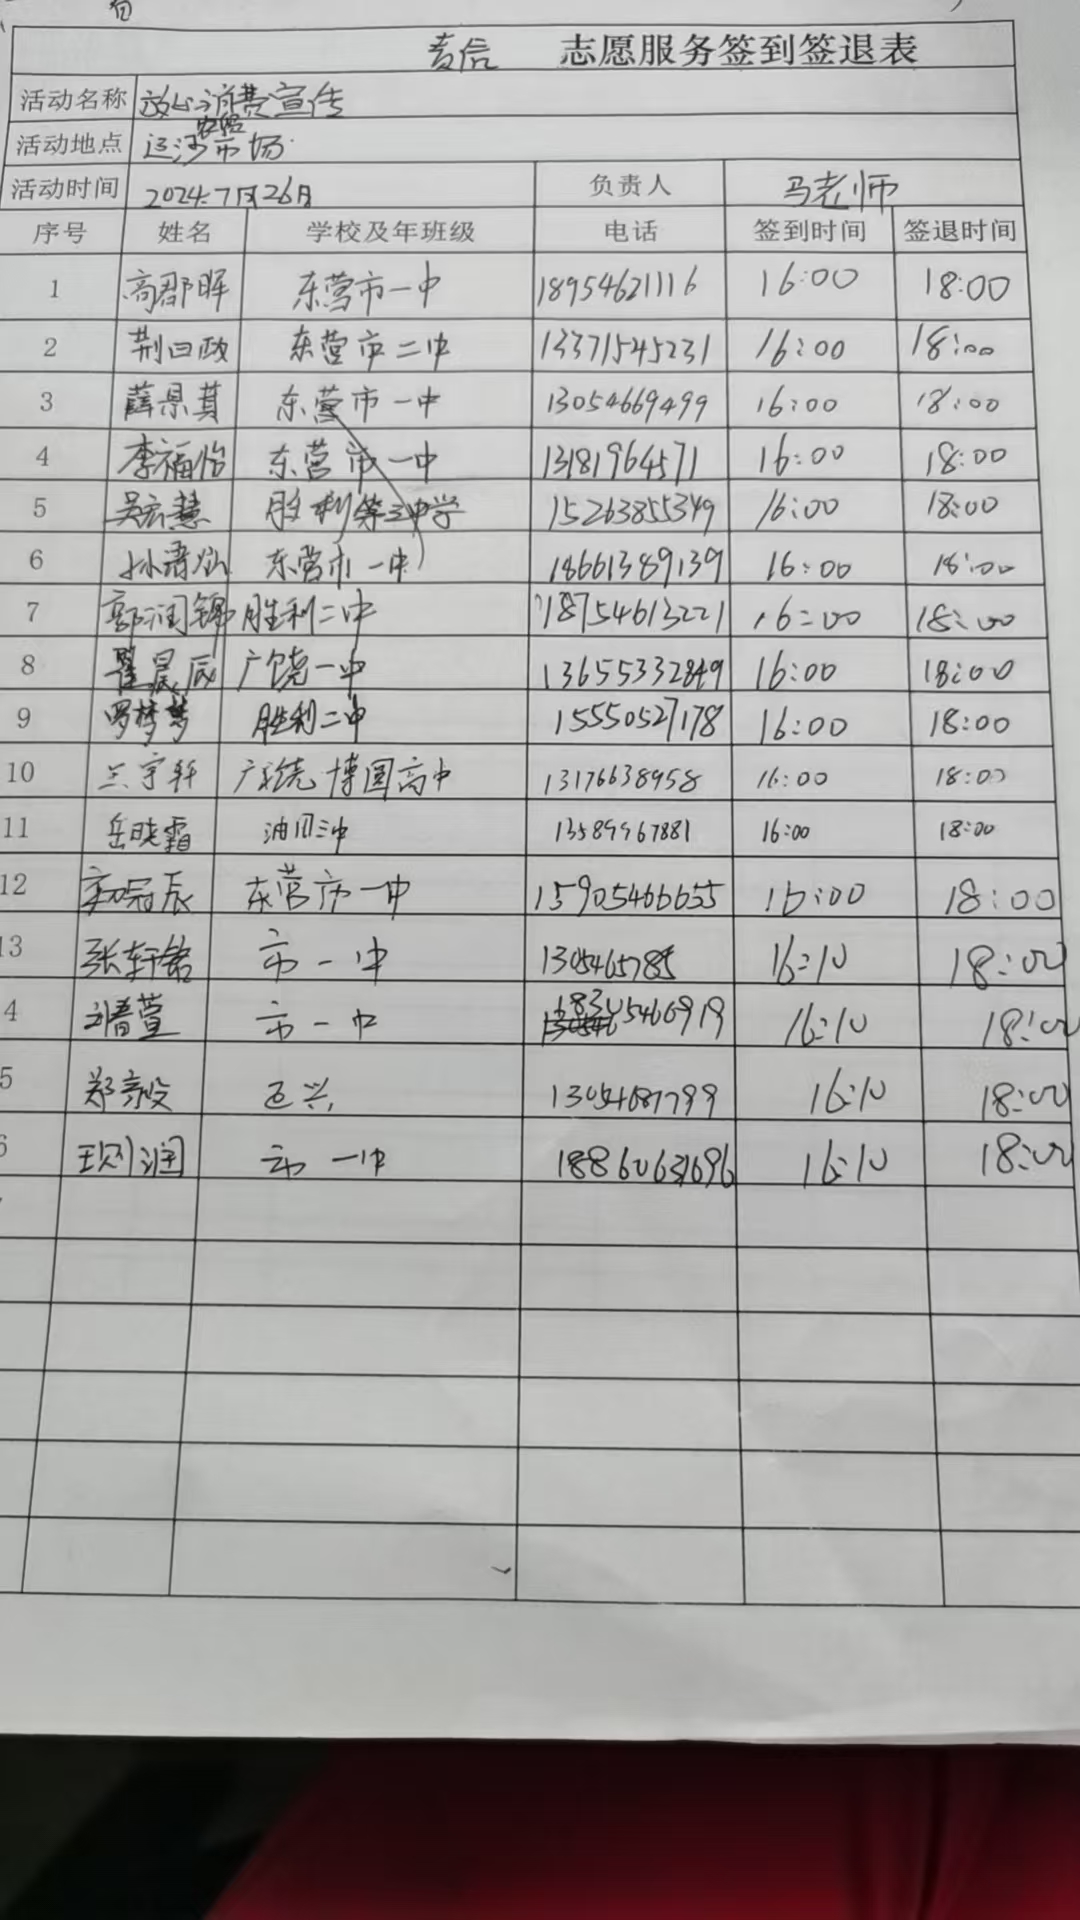 志愿服务签到签退表
活动名称 放心消费宣传
活动地点 市场
活动时间 2024.7月26日 负责人 马老师
序号 姓名 学校及年班级 电话 签到时间 签退时间
1 高郡晖 东营市一中 18954621116 16:00 18:00
2 荆曰政 东营市二中 13371545231 16:00 18:00
3 薛景萁 东营市一中 13054669499 16:00 18:00
4 李福怡 东营市一中 13181964571 16:00 18:00
5 吴宏慧 胜利第三中学 15263855349 16:00 18:00
6 东营市一中 18661389139 16:00 18:00
7 郭润锦 胜利二中 18754613221 16:00 18:00
8 翟晨辰 广饶一中 13655332849 16:00 18:00
9 罗梦梦 胜利二中 15550527178 16:00 18:00
10 兰宇轩 广饶 博圆高中 13176638958 16:00 18:00
11 岳晓霜 油田三中 13589967881 16:00 18:00
12 冠辰 东营市一中 15905466655 16:00 18:00
13 张轩铭 市一中 1305465785 16:10 18:00
4 市一中 18:00 16:10
5 郑毅 13054687799 16:10 18:00
6 市一中 16:10 18:00